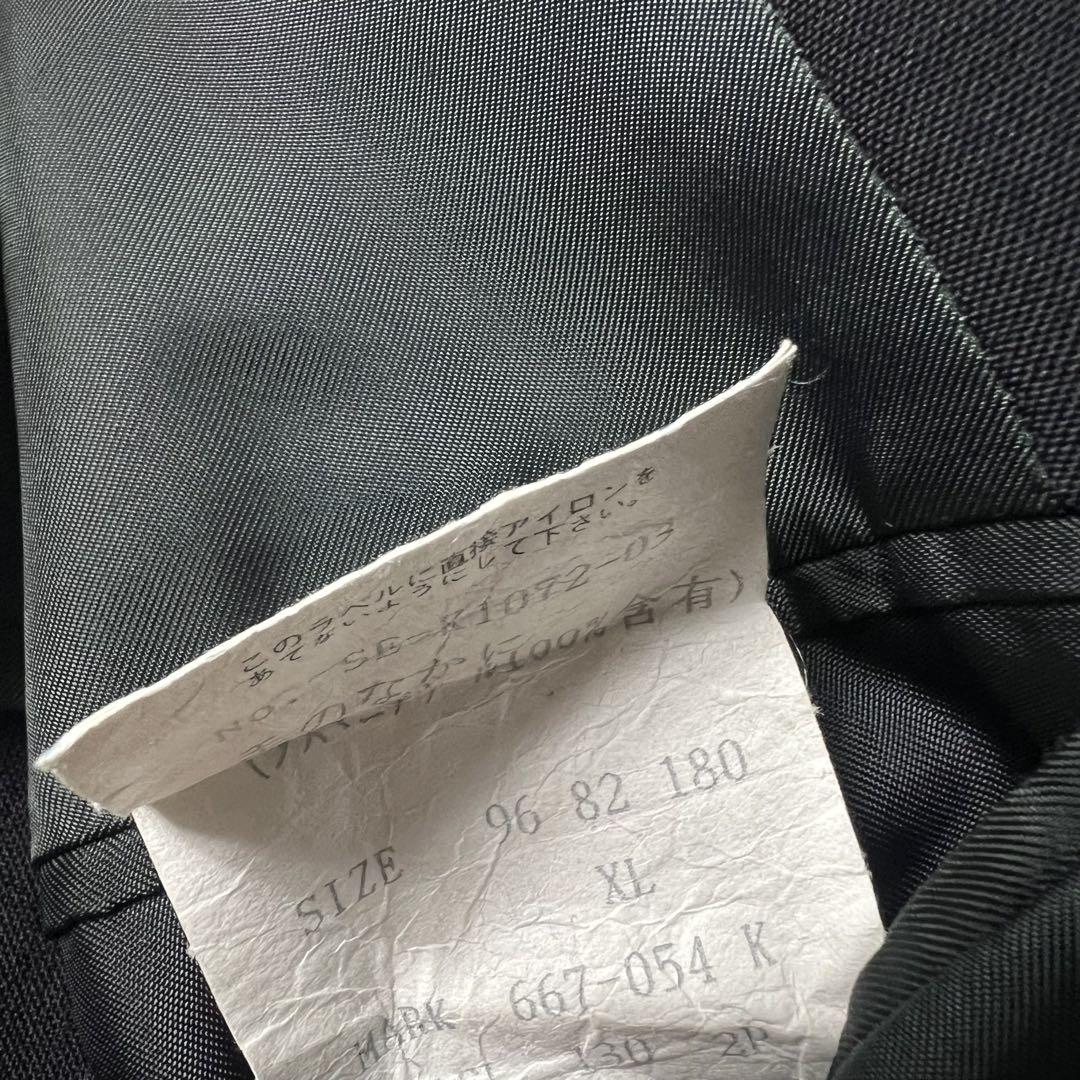 このラベルに直接アイロンを
あてないようにして下さい。
NO. SB-K1072-03
100%含有)
SIZE 96 82 180
XL
MARK 667-054 K
130 2P